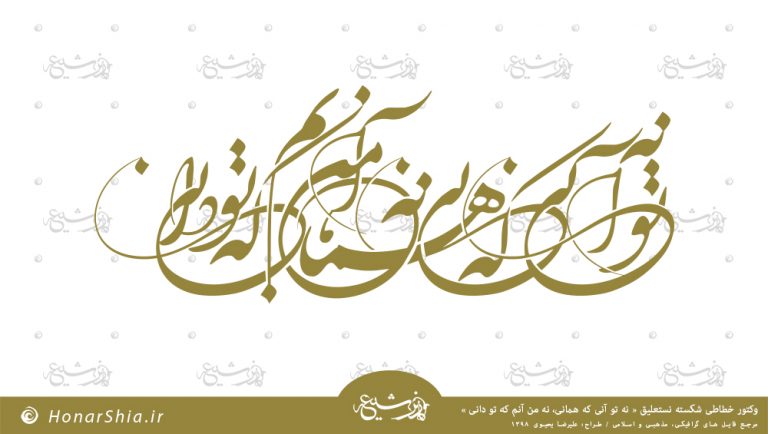 نه تو آنی که همانی نه من آنم که تو دانی
هنر شیعه
وکتور خطاطی شکسته نستعلیق « نه تو آنی که همانی، نه من آنم که تو دانی »
مرجع فایل های گرافیکی، مذهبی و اسلامی / طراح: علیرضا یعیوی ۱۳۹۸
© HonarShia.ir